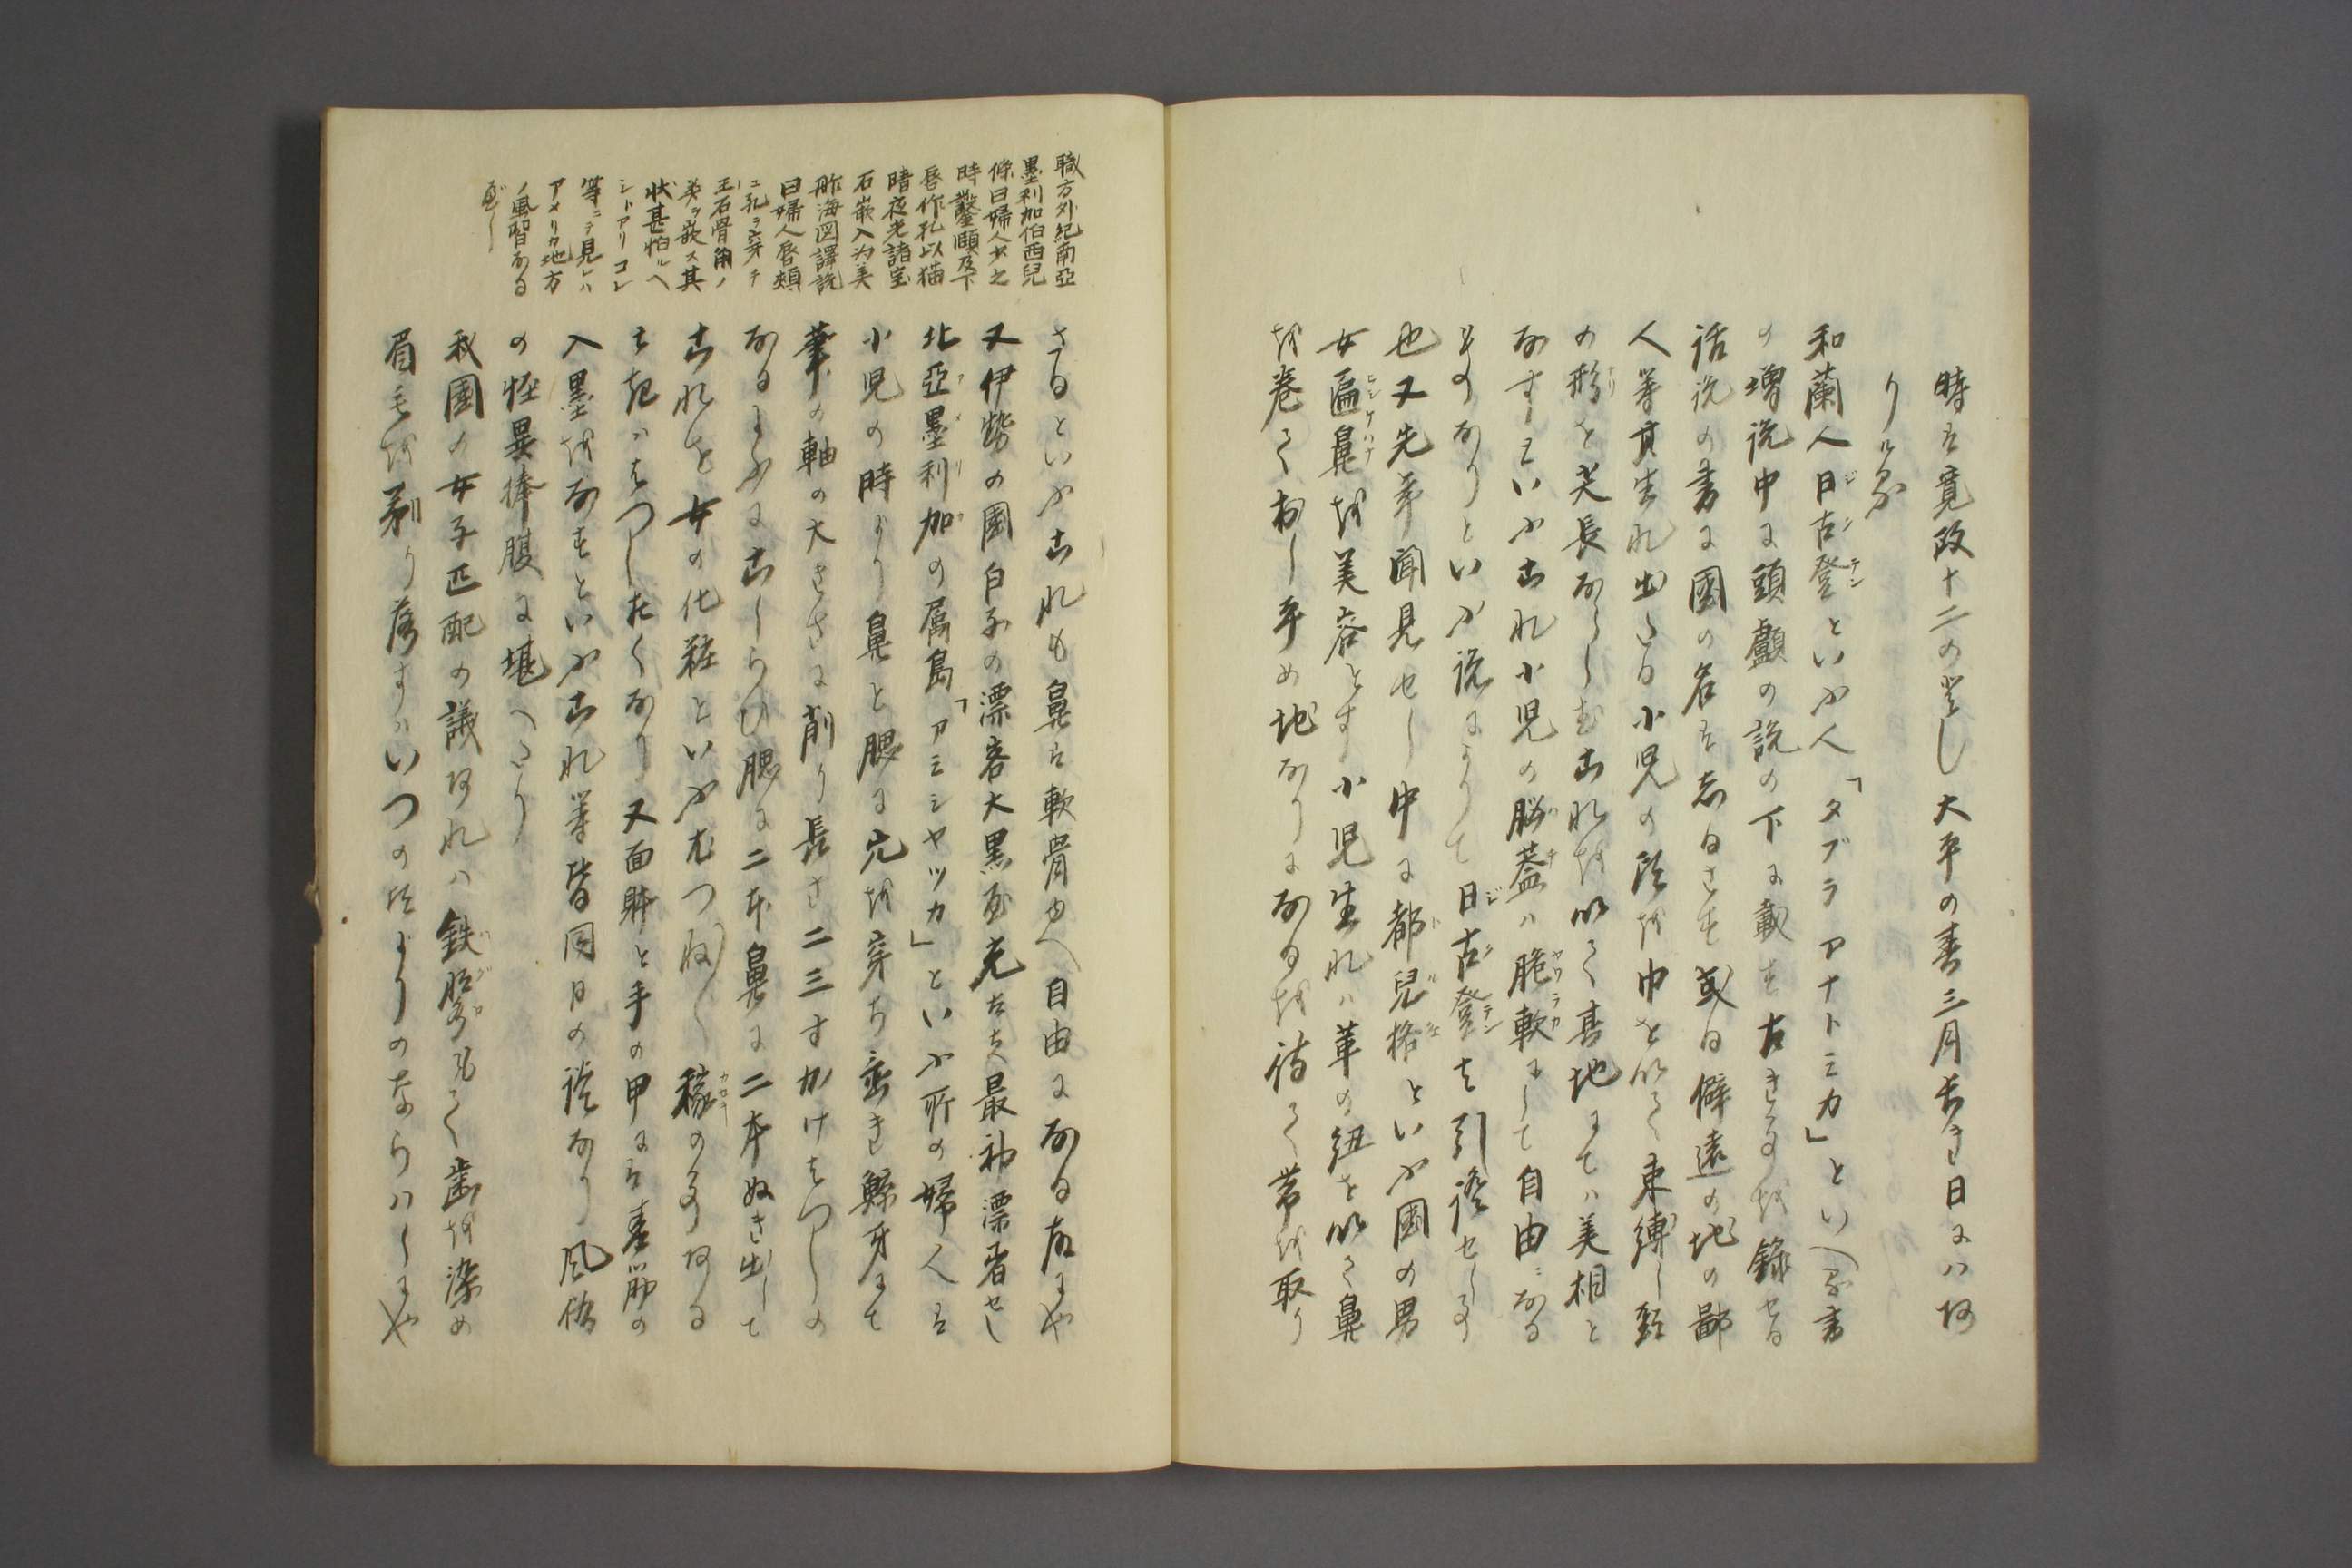 時は寛政十二のとし大平の春三月長き日にハあ
りける
和蘭人日古登といふ人「タブラアナトミカ」といへる書
の増説中に頭顱の説の下に載す古きことを録せる
話説の書に国の名は志るさす或る僻遠の地の鄙
人等其生れ出たる小児の頭を巾を以て束縛し頭
の形を尖長ならしむこれを以て其地にてハ美相と
なすといふこれ小児の脳蓋ハ脆軟にして自由ニなる
ものなりといふ説によりて日古登も引證せし事
也又先年聞見せし中に都児格といふ国の男
女匾鼻を美容とす小児生れハ革の紐を以て鼻
を巻て押し平め地なりになるを待て帯を取り
さるといふこれも鼻は軟骨ゆへ自由になる故にや
又伊勢の国白子の漂客大黒屋光太夫最初漂着せし
北亜墨利加の属島「アミシヤツカ」といふ所の婦人は
小児の時より鼻と腮に穴を穿ち置き鯨牙にて
筆の軸の大きさに削り長さ二三寸かけはつしの
なるよふにこしらひ腮に二本鼻に二本ぬき出して
これを女の化粧といふむつねハ稼の事ある
も起ハはつしおくなり又面躰と手の甲には青筋の
入墨をなすといふこれ等皆同日の談なり風俗
の怪異捧腹に堪へたり
我国の女子匹配の議あれハ鉄漿もて歯を染め
眉毛を剃り落すハいつの頃よりのならハしにや
職方外紀南亜
墨利加伯西児
條曰婦人女之
時鑿頤及下
唇作孔以猫
睛夜光諸宝
石嵌入為美
舶海図譯説
曰婦人唇頬
ニ孔ヲ穿チ
玉石骨角ノ
類ヲ嵌ス其
状甚怕ルヘ
シトアリコレ
等ニテ見レハ
アメリカ地方
ノ風習なる
べし